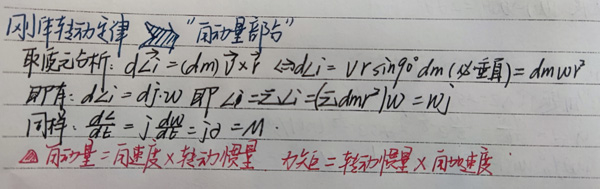 刚体转动定律 "角动量部分"
取质元分析: dL⃗i = (dm) v⃗ × r⃗ ⇔ dLi = v r sin90° dm (必垂直) = dmωr²
即有: dLi = dj·ω 即 Li = ΣLi = (Σdmr²)ω = ωj
同样: dL/dt = j dω/dt = jα = M.
△ 角动量 = 角速度 × 转动惯量 力矩 = 转动惯量 × 角加速度